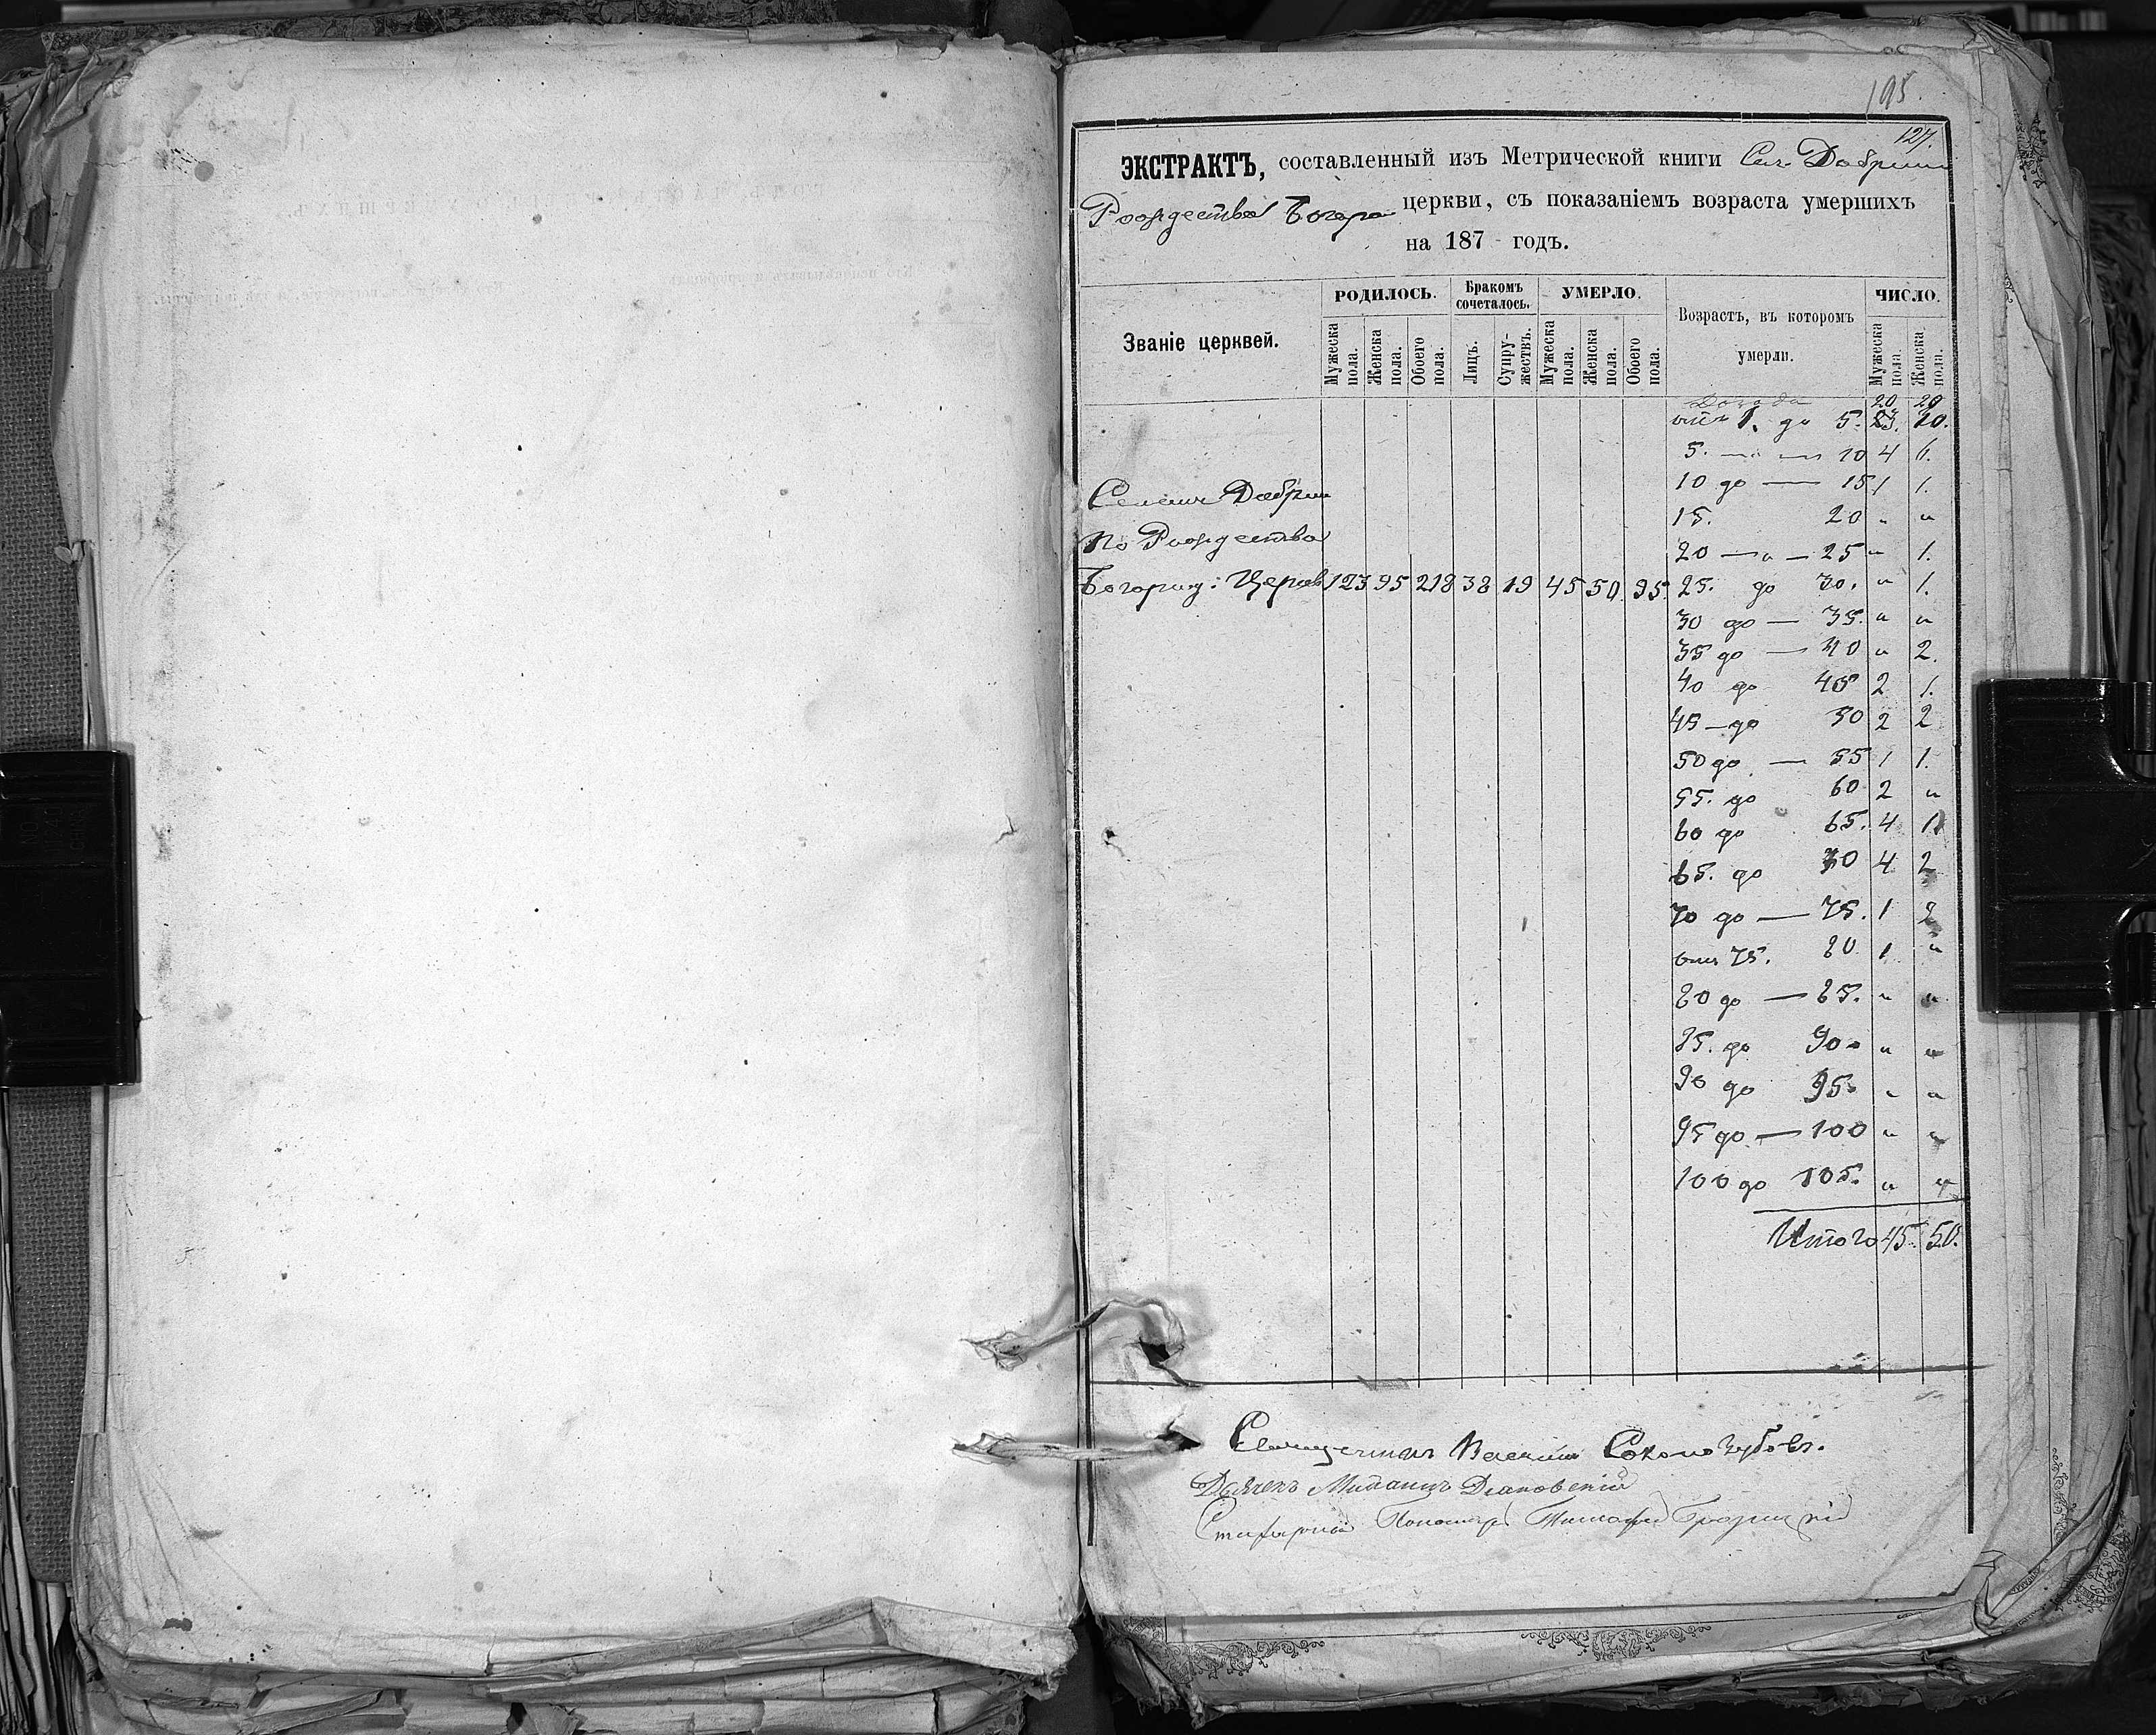 195.
127.
ЭКСТРАКТЪ, составленный изъ Метрической книги Сел. Добрыни
Рождества Богор церкви, съ показаніемъ возраста умершихъ
на 187 годъ.
Званіе церквей.
РОДИЛОСЬ.
Мужеска пола.
Женска пола.
Обоего пола.
Бракомъ сочеталось.
Лицъ.
Супружествъ.
УМЕРЛО.
Мужеска пола.
Женска пола.
Обоего пола.
Возрастъ, въ которомъ умерли.
ЧИСЛО.
Мужеска пола.
Женска пола.
До года 20 29
отъ 1. до 5.
5. — — 10 4 6.
10 до — 15 1 1.
15. 20 „ „
20 — „ — 25 „ 1.
Рождества
Богориц: Церкв 123 95 218 38 19 45 50. 95.
25. до 30. „ 1.
30 до — 35. „ „
35 до — 40 „ 2.
40 до 45 2 1.
45 — до 50 2 2
50 до — 55 1 1.
55. до 60 2 „
60 до 65. 4 1
65. до 70 4 2
70 до — 75. 1 2
отъ 75. 80 1 „
80 до — 85. „ „
85. до 90 „ „
90 до 95 „ „
95 до — 100 „ „
100 до 105. „ „
Итого 45. 50.
Священникъ Василій Соколозубовъ.
Дьячекъ
Пономарь